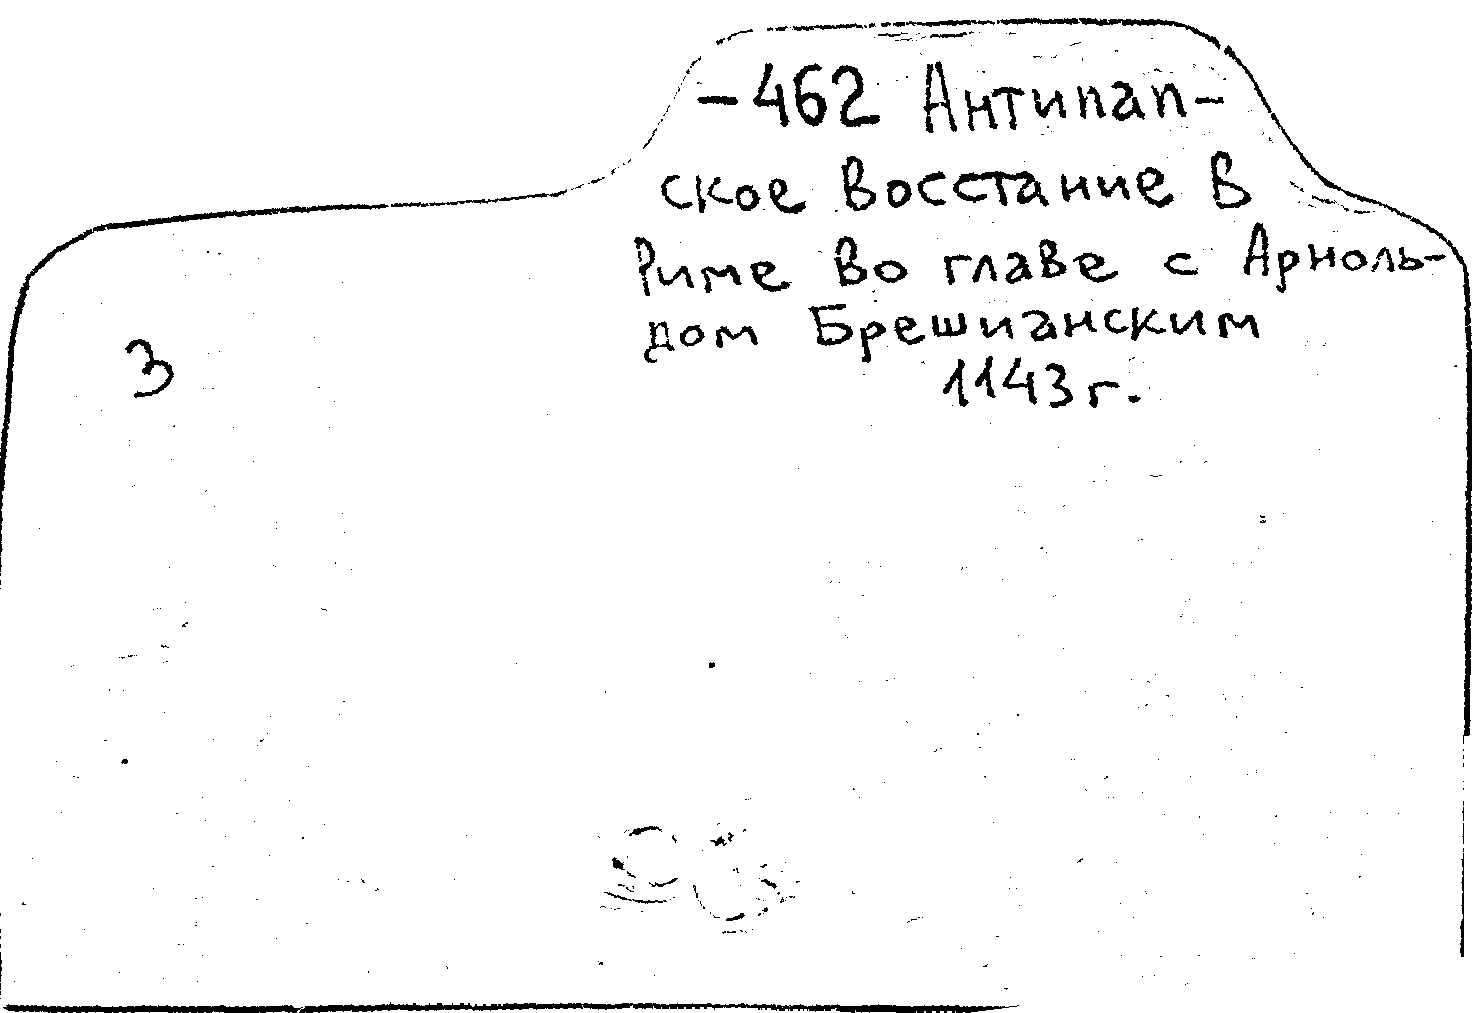 -462 Антипап-
ское восстание в
Риме во главе с Арноль-
дом Брешианским
1143 г.
3